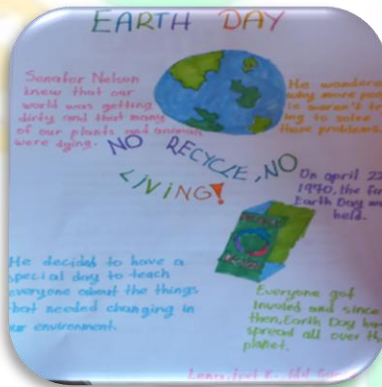 EARTH DAY
Senator Nelson
knew that our
world was getting
dirty and that many
of our plants and animals
were dying.
He wondered
why more peop
le weren't try
ing to solve
these problems.
NO RECYCLE, NO
LIVING!
On april 22
1970, the
Earth Day
held.
He decided to have a
special day to teach
everyone about the things
that needed changing in
our environment.
Everyone got
involed and since
then, Earth Day
spread all over the
planet.